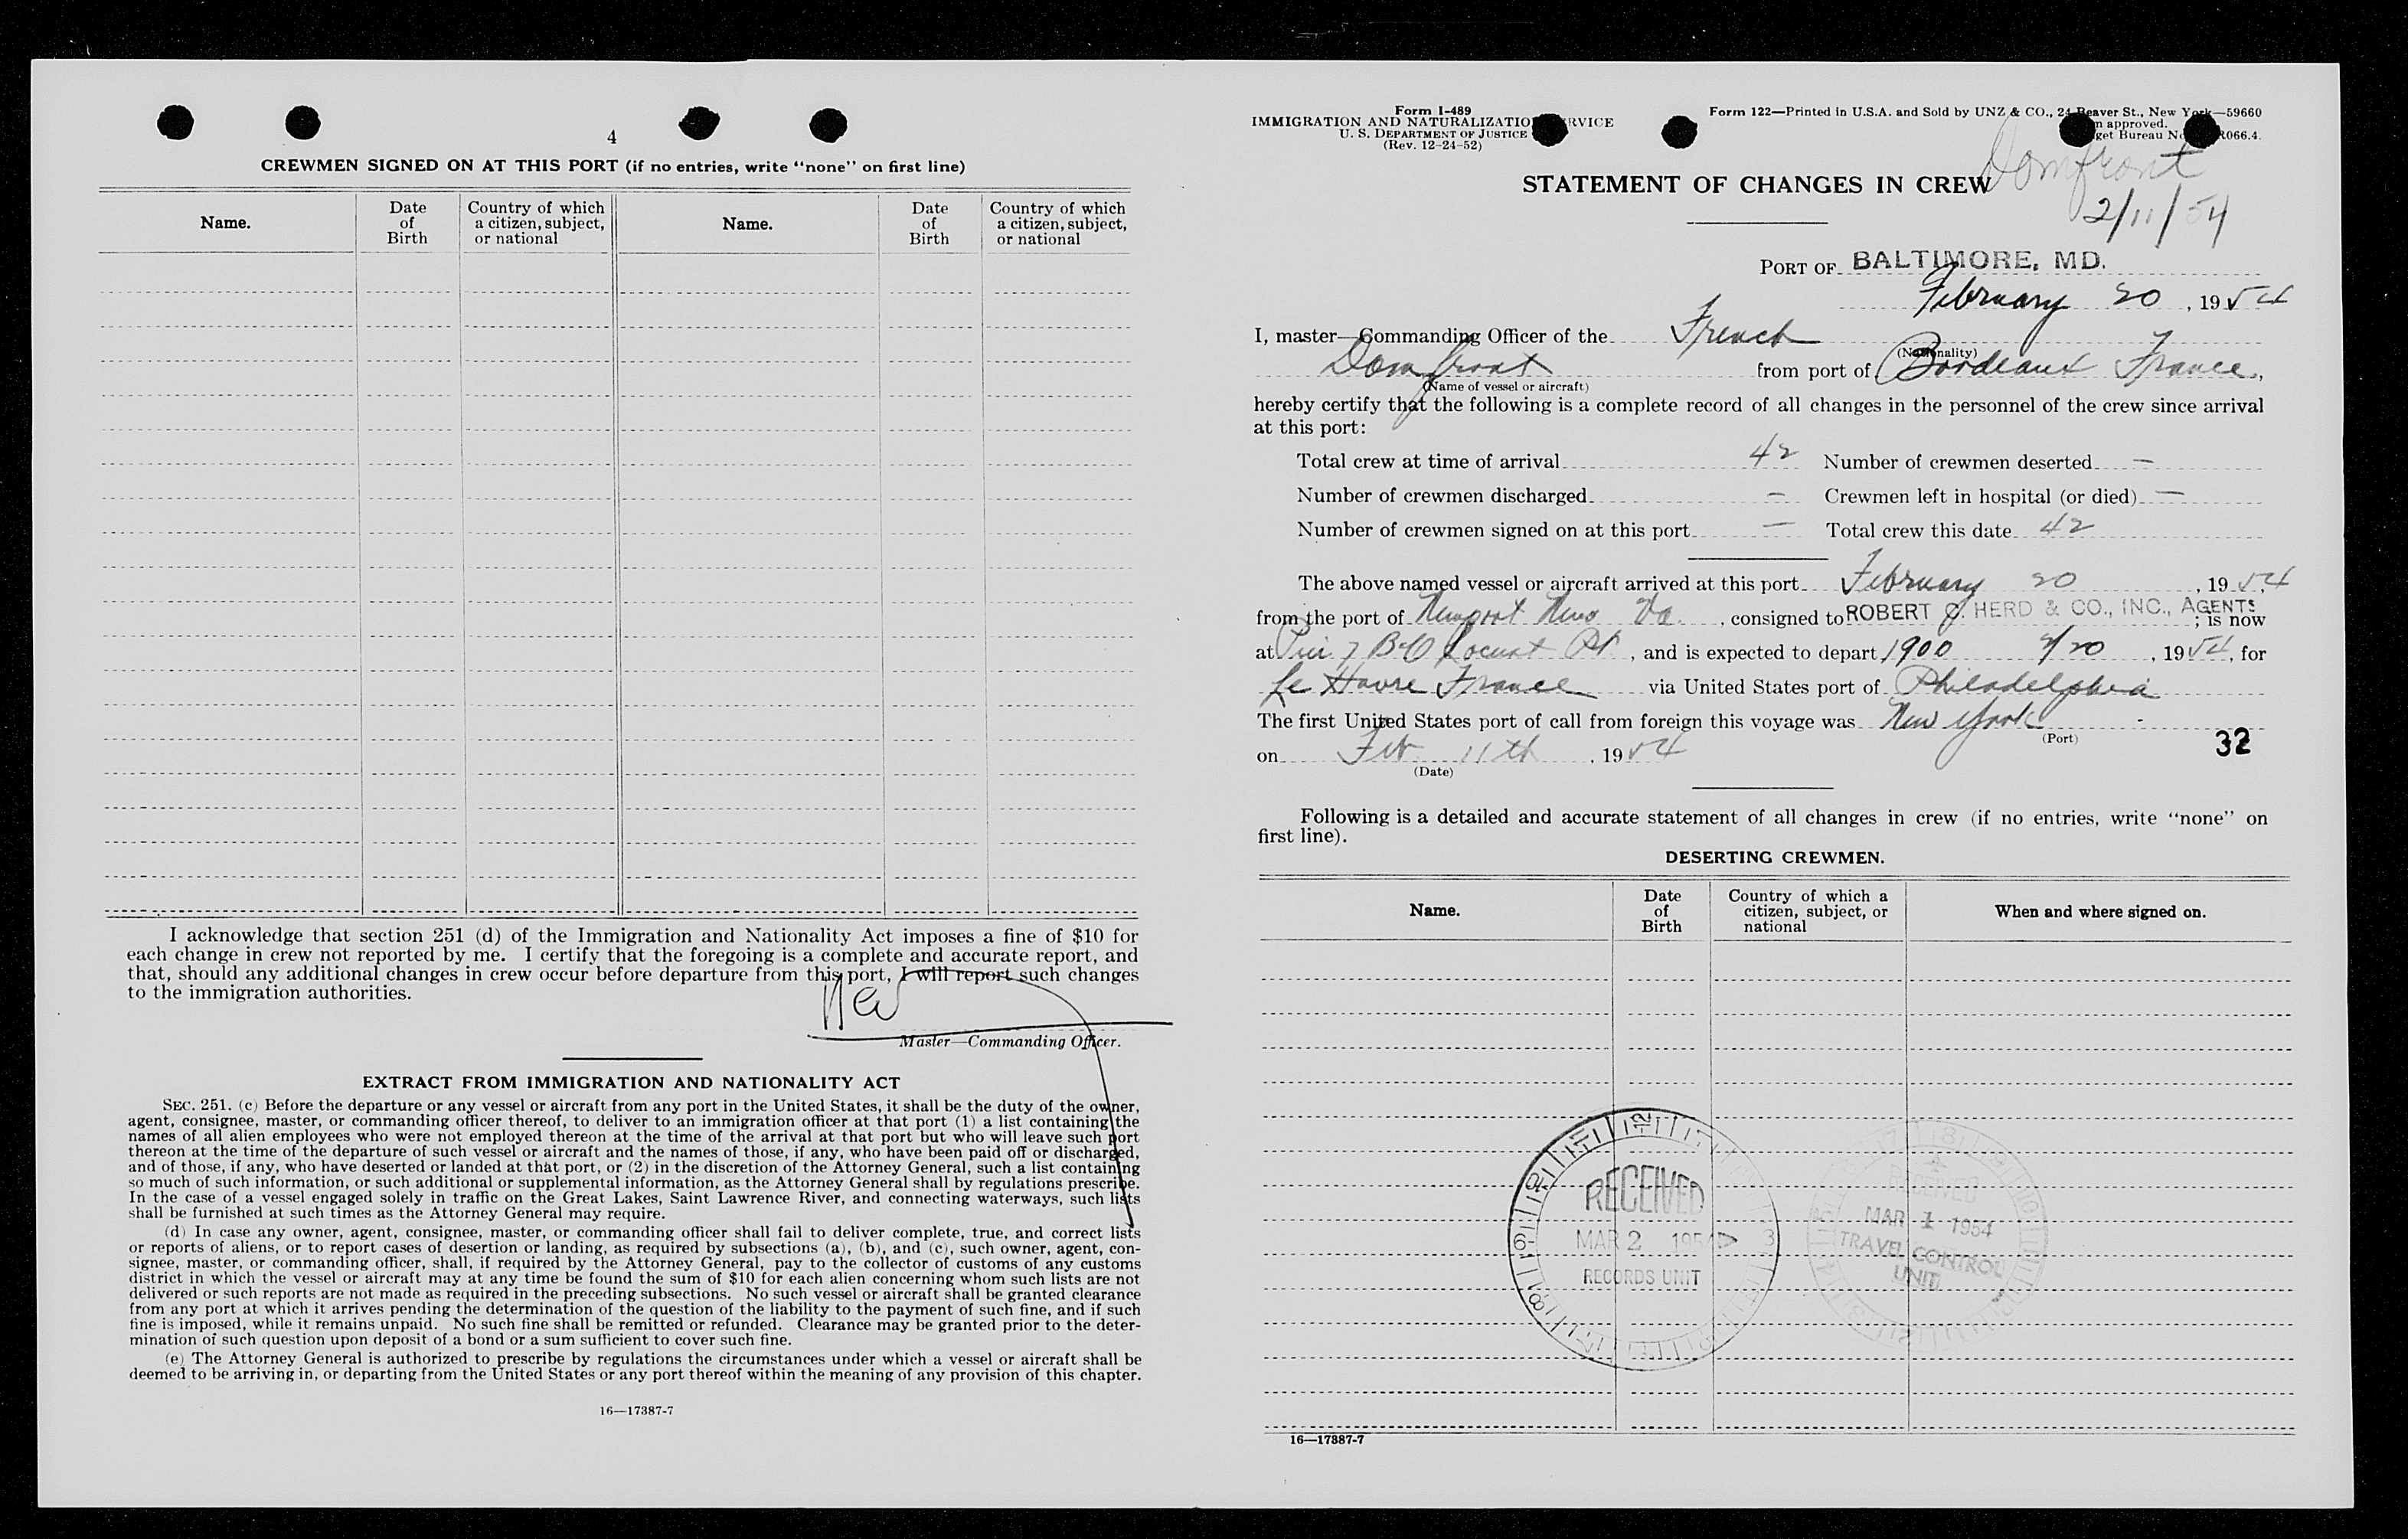 4
CREWMEN SIGNED ON AT THIS PORT (if no entries, write "none" on first line)
Name. Date of Birth Country of which a citizen, subject, or national Name. Date of Birth Country of which a citizen, subject, or national
I acknowledge that section 251 (d) of the Immigration and Nationality Act imposes a fine of $10 for
each change in crew not reported by me. I certify that the foregoing is a complete and accurate report, and
that, should any additional changes in crew occur before departure from this port, I will report such changes
to the immigration authorities.
Master—Commanding Officer.
EXTRACT FROM IMMIGRATION AND NATIONALITY ACT
SEC. 251. (c) Before the departure or any vessel or aircraft from any port in the United States, it shall be the duty of the owner,
agent, consignee, master, or commanding officer thereof, to deliver to an immigration officer at that port (1) a list containing the
names of all alien employees who were not employed thereon at the time of the arrival at that port but who will leave such port
thereon at the time of the departure of such vessel or aircraft and the names of those, if any, who have been paid off or discharged,
and of those, if any, who have deserted or landed at that port, or (2) in the discretion of the Attorney General, such a list containing
so much of such information, or such additional or supplemental information, as the Attorney General shall by regulations prescribe.
In the case of a vessel engaged solely in traffic on the Great Lakes, Saint Lawrence River, and connecting waterways, such lists
shall be furnished at such times as the Attorney General may require.
(d) In case any owner, agent, consignee, master, or commanding officer shall fail to deliver complete, true, and correct lists
or reports of aliens, or to report cases of desertion or landing, as required by subsections (a), (b), and (c), such owner, agent, con-
signee, master, or commanding officer, shall, if required by the Attorney General, pay to the collector of customs of any customs
district in which the vessel or aircraft may at any time be found the sum of $10 for each alien concerning whom such lists are not
delivered or such reports are not made as required in the preceding subsections. No such vessel or aircraft shall be granted clearance
from any port at which it arrives pending the determination of the question of the liability to the payment of such fine, and if such
fine is imposed, while it remains unpaid. No such fine shall be remitted or refunded. Clearance may be granted prior to the deter-
mination of such question upon deposit of a bond or a sum sufficient to cover such fine.
(e) The Attorney General is authorized to prescribe by regulations the circumstances under which a vessel or aircraft shall be
deemed to be arriving in, or departing from the United States or any port thereof within the meaning of any provision of this chapter.
16—17387-7
Form I-489
IMMIGRATION AND NATURALIZATION SERVICE
U. S. DEPARTMENT OF JUSTICE
(Rev. 12-24-52)
Form 122—Printed in U.S.A. and Sold by UNZ & CO., 24 Beaver St., New York—59660
approved.
Bureau No. R066.4.
Domfront
2/11/54
STATEMENT OF CHANGES IN CREW
PORT OF BALTIMORE, MD.
February 20, 1954
I, master—Commanding Officer of the French
(Nationality)
Domfront from port of Bordeaux France,
(Name of vessel or aircraft)
hereby certify that the following is a complete record of all changes in the personnel of the crew since arrival
at this port:
Total crew at time of arrival 42 Number of crewmen deserted —
Number of crewmen discharged — Crewmen left in hospital (or died) —
Number of crewmen signed on at this port — Total crew this date 42
The above named vessel or aircraft arrived at this port February 20, 1954,
from the port of Newport News Va., consigned to ROBERT C. HERD & CO., INC., AGENTS; is now
at Pier 7 B&O Locust Pt, and is expected to depart 1900 2/20, 1954, for
Le Havre France via United States port of Philadelphia
The first United States port of call from foreign this voyage was New York
(Port)
on Feb 11th, 1954
(Date)
32
Following is a detailed and accurate statement of all changes in crew (if no entries, write "none" on
first line).
DESERTING CREWMEN.
Name. Date of Birth Country of which a citizen, subject, or national When and where signed on.
RECEIVED
MAR 2 1954
RECORDS UNIT
RECEIVED
MAR 1 1954
TRAVEL CONTROL
UNIT
16—17387-7